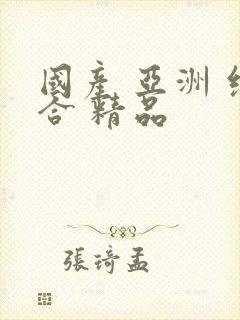 國產亞洲
合精品
張琦孟